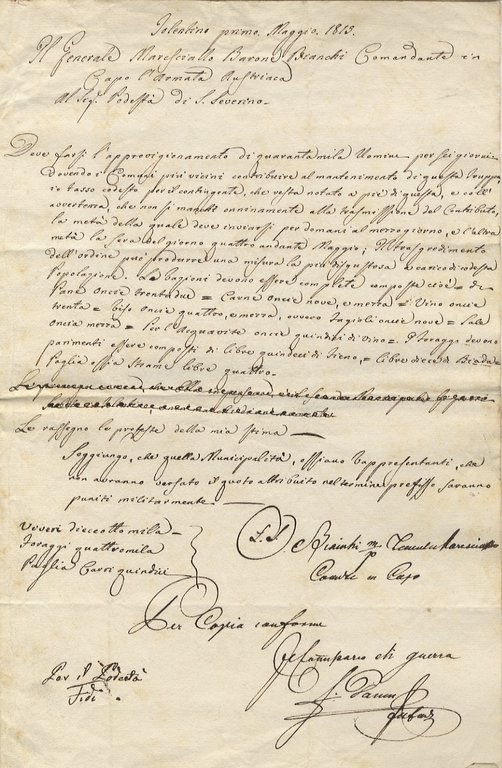 Tolentino primo Maggio 1815.
Il Generale Maresciallo Barone Bianchi Comandante in
Capo l'Armata Austriaca
Al Sig. Podestà di S. Severino.
Deve farsi l'approvigionamento di quaranta mila Uomini per sei giorni.
Dovendo i Comuni più vicini contribuire al mantenimento di questa Truppa,
io tasso codesto per il contingente, che resta notato a piè di questa, e coll'
avvertenza, che non si manchi onninamente alla trasmissione del Contributo,
la metà della quale deve inviarsi per domani al mezzogiorno, e l'altra
metà la sera del giorno quattro andante Maggio; Il trasgredimento
dell'ordine può produrre una misura la più disgustosa a carico di codesta
Popolazione. Le Razioni devono essere complete composte cioè = di
Pane oncie trentadue = Carne oncie nove, e mezza = Vino oncie
trenta = Riso oncie quattro, e mezza, ovvero Fagioli oncie nove = Sale
oncia mezza = Per l'Acquavite oncie quindici di Vino = I Foraggi devono
parimenti essere composti di libre quindeci di Fieno, = libre dieci di Biada =
Paglia ossia Strame libre quattro.
Le rassegno le proteste della mia stima —
Soggiungo, che quelle Municipalità, ossiano Rappresentanti, che
non avranno versato il quoto attribuito nel termine prefisso saranno
puniti militarmente —
Viveri dieciotto mila —
Foraggi quattromila
Paglia Carri quindici
Bianchi
Comte in Capo
Per Copia conforme
Il Comissario di guerra
Per il Podestà